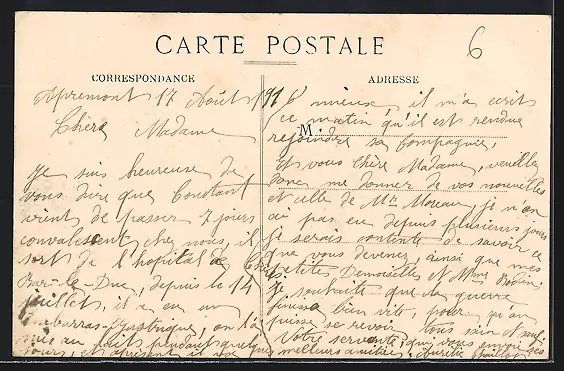 CARTE POSTALE
6
CORRESPONDANCE
ADRESSE
M
Apremont 17 Août 191
Chère Madame
Je suis heureuse de
vous dire que Constant
vient de passer 7 jours
convalescent chez nous, il
sort de l'hôpital de
Bar-le-Duc, depuis le 14
juillet, il a eu un
embarras-gastrique, on l'a
mis au lait pendant quelq
jours, et à présent il va
mieux, il m'a écrit
ce matin qu'il est rendue
rejoindre sa Compagnie,
Et vous Chère Madame, veuillez
donc me donner de vos nouvelles
et celle de Mr Moreau, je n'en
ai pas eu depuis plusieurs jours
je serais contente de savoir ce
que vous devenez, ainsi que mes
petites Demoiselle et Mme
Je souhaite que la guerre
finisse bien vite, pour qu'on
puisse se revoir tous sain et sauf
Votre servante, qui vous envoie ses
meilleurs amitiés, Aurélie